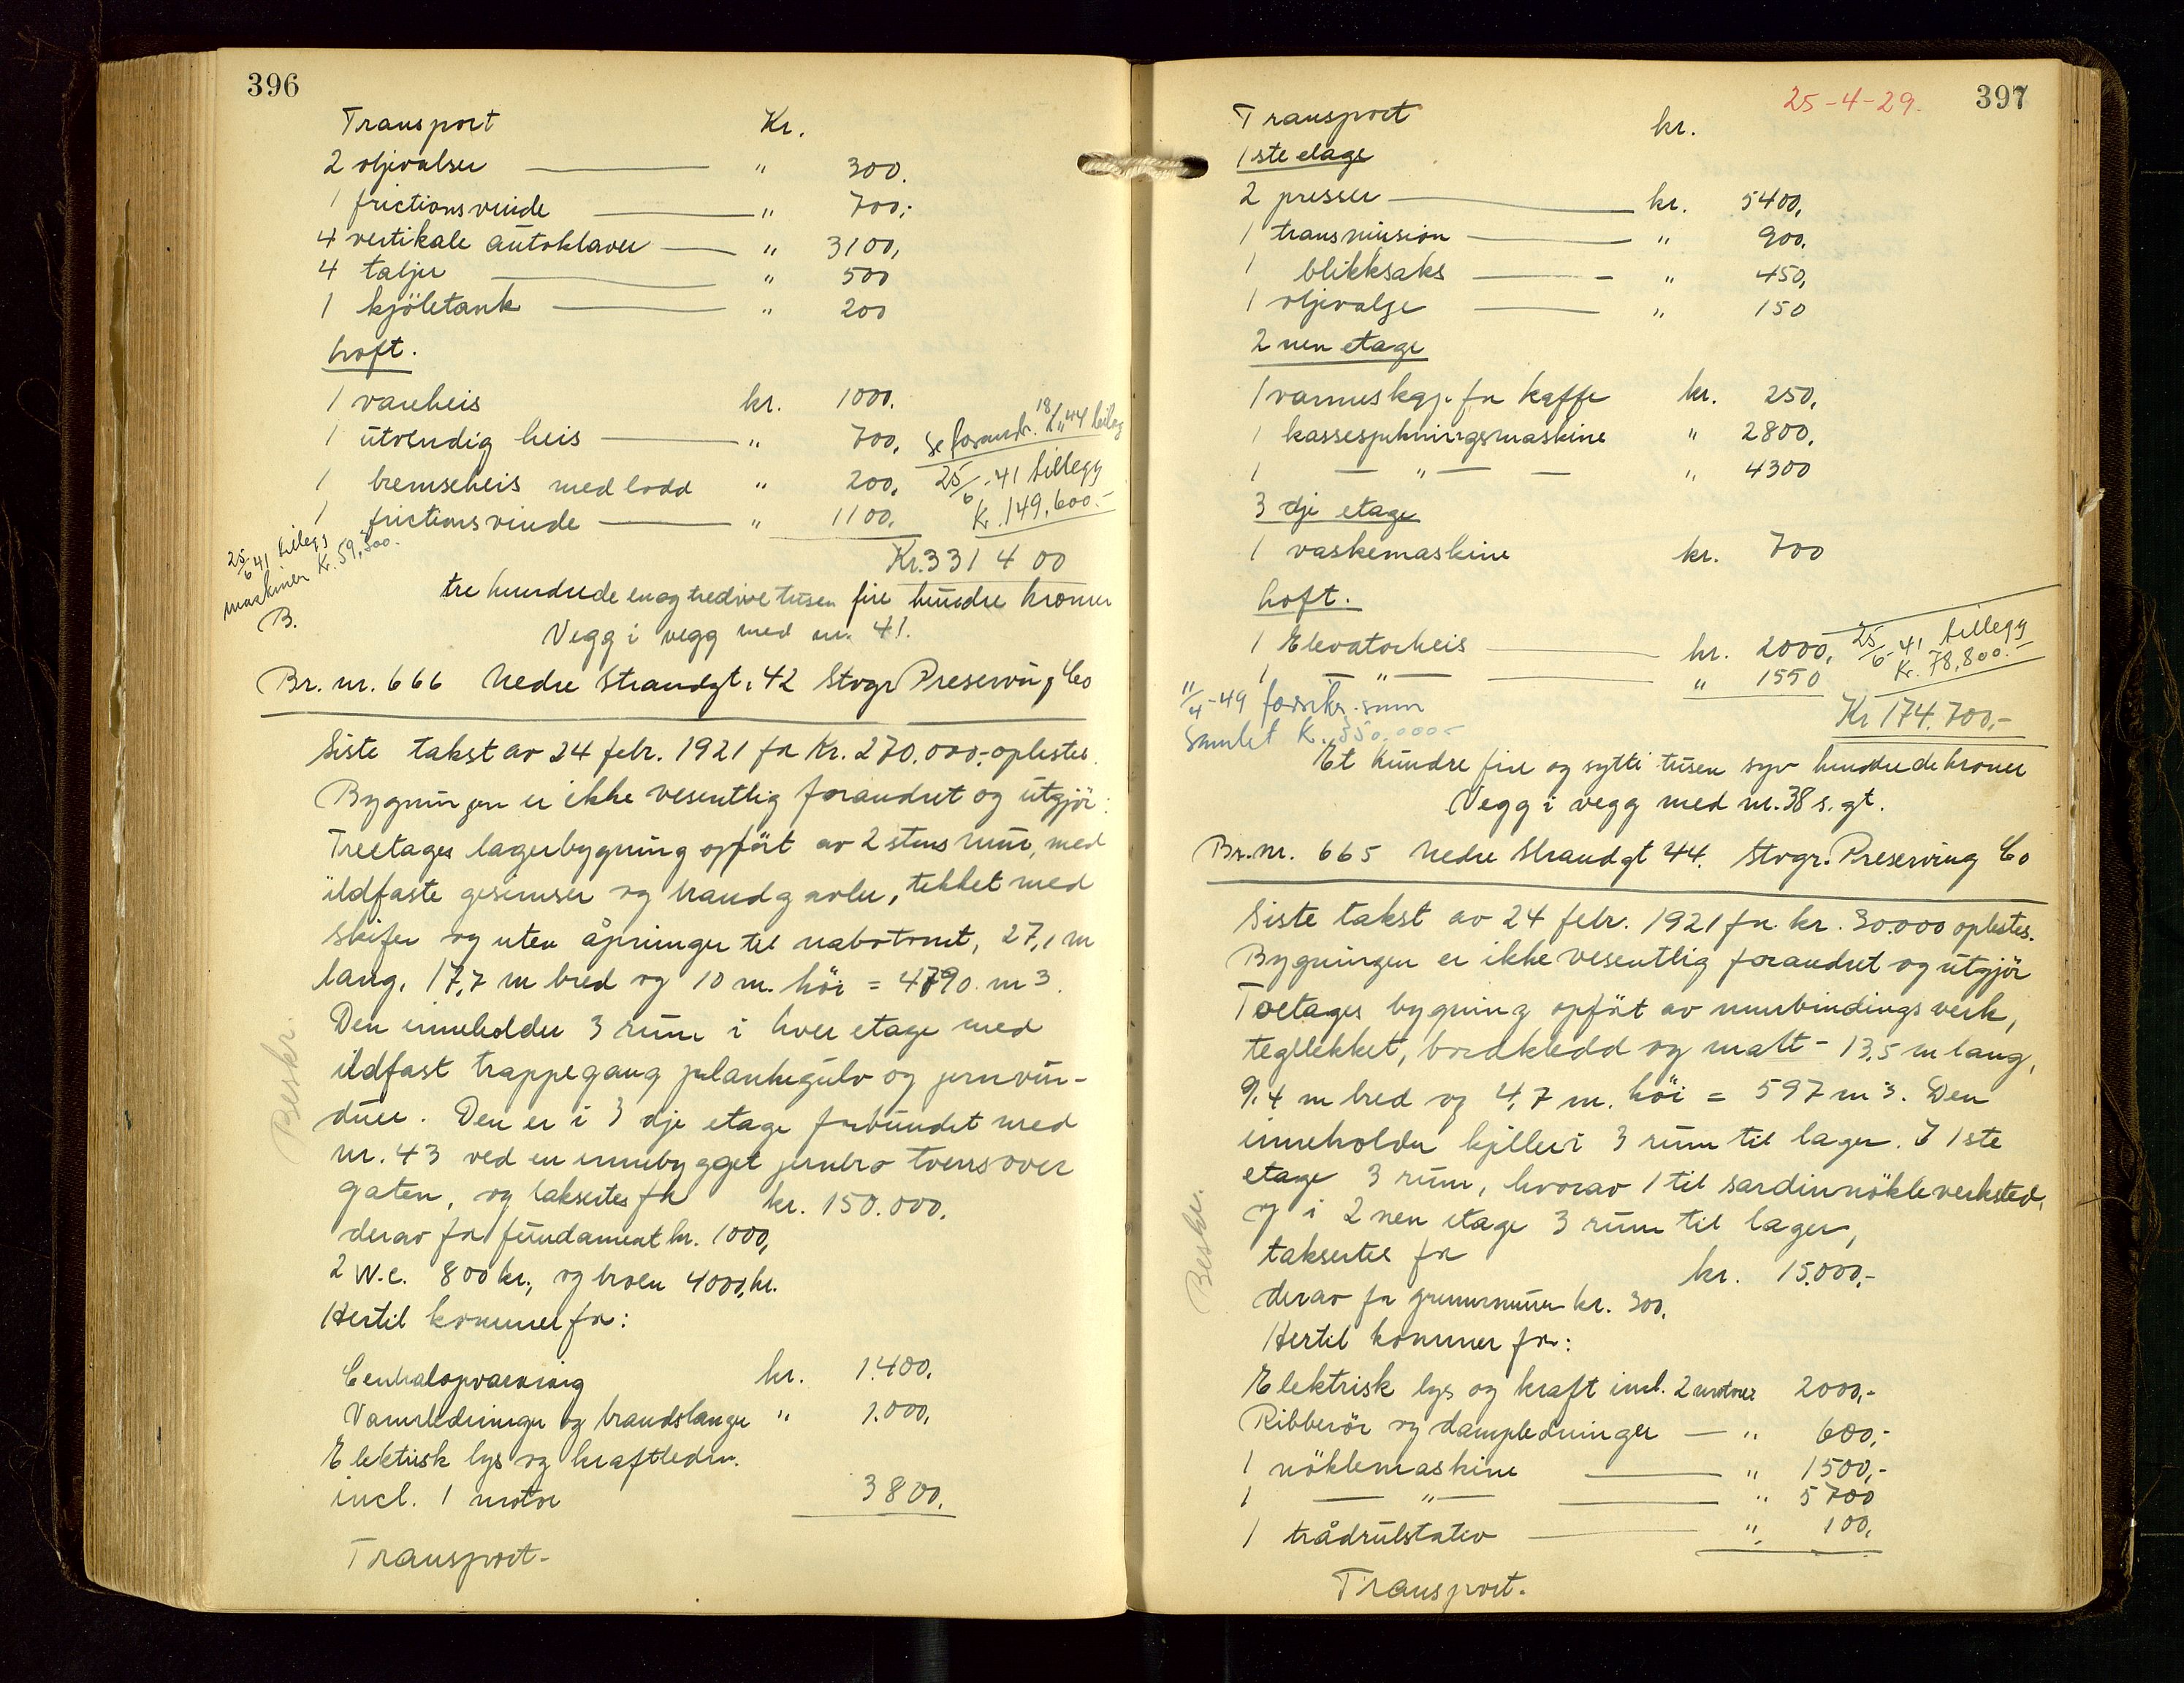 396
Transport Kr.
2 oljevalser " 300.
1 frictionsvinde " 700,-
4 vertikale autoklaver " 3100,
4 taljer " 500
1 kjöletank " 200
Loft.
1 vareheis kr. 1000.
1 utvendig heis " 700,
1 bremseheis med lodd " 200,
1 frictionsvinde " 1100,
Se forandr. 18/11 44 bilag
25/6-41 tillegg
Kr. 149,600.-
25/6 41 tillegg
maskiner Kr. 59,300.
B.
Kr. 331 400
tre hundrede enog tredive tusen fire hundre kroner
Vegg i vegg med nr. 41.
Br. nr. 666 Nedre Strandgt. 42 Stvgr Preserving Co
Siste takst av 24 febr. 1921 for Kr. 270.000,- oplestes.
Bygningen er ikke vesentlig forandret og utgjör:
Treetages lagerbygning opfört av 2 stens mur, med
ildfaste gesimser og brandgavler, tekket med
skifer og uten åpninger til nabotomt, 27,1 m
lang, 17,7 m bred og 10 m. höi = 4790 m3.
Den inneholder 3 rum i hver etage med
ildfast trappegang plankegulv og jernvin-
duer. Den er i 3 dje etage forbundet med
nr. 43 ved en innebygget jernbro tversover
gaten, og taksertes for kr. 150.000,
derav for fundament kr. 1000,
2 W.C. 800 kr., og broen 4000, kr.
Hertil kommer for:
Beskr.
Centralopvarming kr. 1.400,
Vannledninger og brandslanger " 1.000,
Elektrisk lys og kraftledn.
incl. 1 motor 3800,
Transport-
25-4-29. 397
Transport kr.
1ste etage
2 presser kr. 5400,
1 transmission " 900,
1 blikksaks " 450,
1 oljevalse " 150
2nen etage
1 varmeskap for kaffe kr. 250,
1 kassespikningsmaskine " 2800,
1 " " 4300
3 dje etage
1 vaskemaskine kr. 700
Loft.
1 Elevatorheis kr. 2000,
1 " " 1550
25/6-41 tillegg
Kr. 78,800.-
11/4-49 forsikr. sum
samlet K. 350.000-
Kr 174.700,-
Et hundre fire og sytti tusen syv hundrede kroner
Vegg i vegg med nr. 38 s. gt.
Br. nr. 665 Nedre Strandgt 44. Stvgr. Preserving Co
Siste takst av 24 febr. 1921 for kr. 30.000 oplestes.
Bygningen er ikke vesentlig forandret og utgjör
Toetages bygning opfört av murbindingsverk,
tegltekket, bordkledd og malt - 13,5 m lang,
9,4 m bred og 4,7 m. höi = 597 m3. Den
inneholder kjeller i 3 rum til lager. I 1ste
etage 3 rum, hvorav 1 til sardinnökleverksted,
og i 2nen etage 3 rum til lager,
taksertes for kr. 15.000,-
derav for grunnmuren kr. 300.
Hertil kommer for:
Beskr.
Elektrisk lys og kraft incl. 2 motorer 2000,-
Ribberör og dampledninger " 600,-
1 nöklemaskine " 1500,-
1 " " 5700
1 trådrulstativ " 100,
Transport.